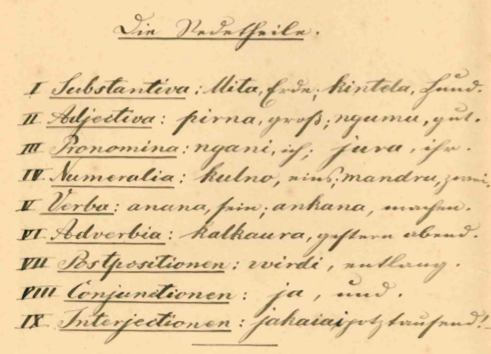 Die Redetheile.
I Substantiva: Mita, Erde; kintela, Hund.
II Adjectiva: pirna, groß; ngumu, gut.
III Pronomina: ngani, ich; jura, ihr.
IV Numeralia: kulno, eins; mandru, zwei.
V Verba: anana, sein; ankana, machen.
VI Adverbia: kalkaura, gestern abend.
VII Postpositionen: wirdi, entlang.
VIII Conjunctionen: ja, und.
IX Interjectionen: jakaiai potztausend!